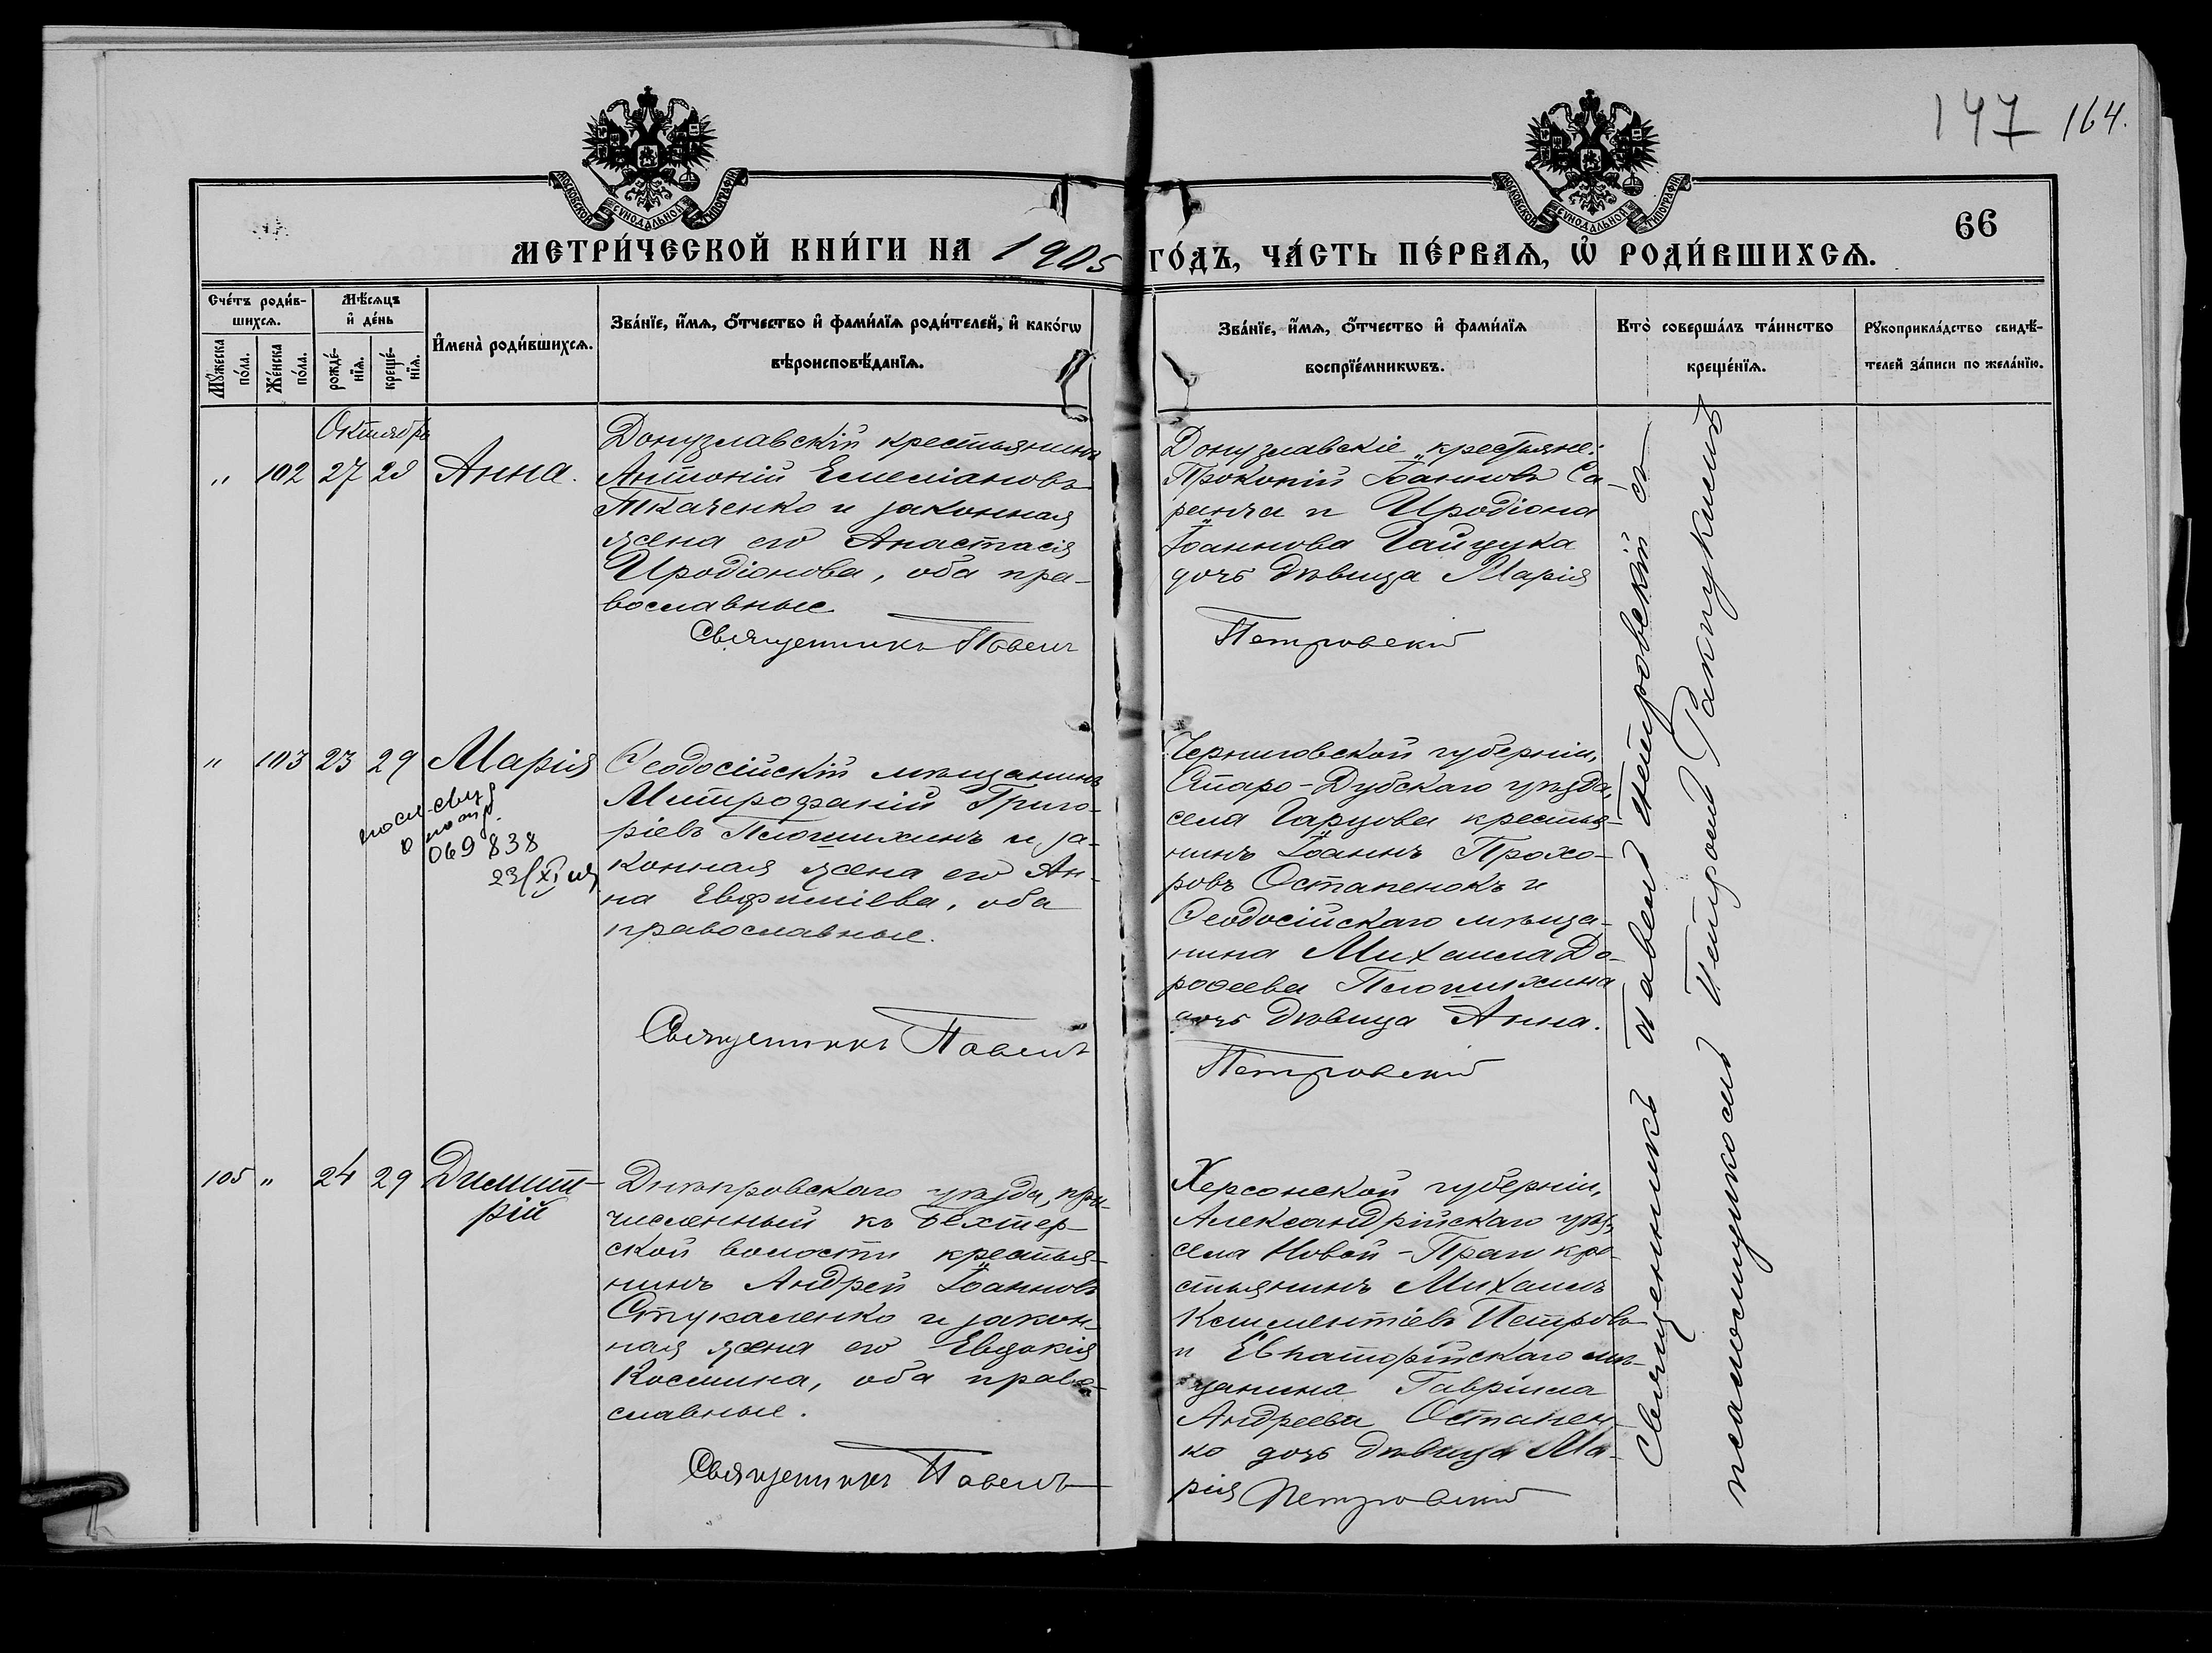 147 164.
МОСКОВСКОЙ СУНОДАЛЬНОЙ ТИПОГРАФІИ
МОСКОВСКОЙ СУНОДАЛЬНОЙ ТИПОГРАФІИ
66
МЕТРИ́ЧЕСКОЙ КНИ́ГИ НА 1905 ГО́ДЪ, ЧА́СТЬ ПЕ́РВАѦ, Ѡ҆ РОДИ́ВШИХСѦ.
Сче́тъ роди́в-
шихсѧ.
Мꙋ́жеска по́ла.
Же́нска по́ла.
Мѣ́сѧцъ
и҆ де́нь
рожде́-нїѧ.
креще́-нїѧ.
И҆мена̀ роди́вшихсѧ.
Зва́нїе, и҆́мѧ, ѻ҆́тчество и҆ фами́лїѧ роди́телей, и҆ како́гѡ
вѣроисповѣ́данїѧ.
Зва́нїе, и҆́мѧ, ѻ҆́тчество и҆ фами́лїѧ
воспрїе́мникѡвъ.
Кто̀ соверша́лъ та́инство
креще́нїѧ.
Рꙋкоприкла́дство свидѣ́-
телей за́писи по жела́нїю.
Октябрь
" 102 27 28 Анна.
Донузлавскій крестьянинъ
Антоній Емеліановъ
Ткаченко и законная
жена его Анастасія
Иродіонова, оба пра-
вославные
Священникъ Павелъ
Донузлавскіе крестьяне:
Прокопій Іоанновъ Са-
ранча и Иродіона
Іоаннова Гайдука
дочь дѣвица Марія
Петровскій
" 103 23 29 Марія
069 838
Ѳеодосійскій мѣщанинъ
Митрофаній Григо-
ріевъ Плюшихинъ и за-
конная жена его Ан-
на Евфиміева, оба
православные.
Священникъ Павелъ
Черниговской губерніи,
Старо-Дубскаго уѣзда,
села Гарцова крестья-
нинъ Іоаннъ Прохо-
ровъ Остапенокъ и
Ѳеодосійскаго мѣща-
нина Михаила До-
роѳеева Плюшихина
дочь дѣвица Анна.
Петровскій
105 " 24 29 Димит-
рій
Днѣпровскаго уѣзда, при-
численный къ Бехтер-
ской волости крестья-
нинъ Андрей Іоанновъ
Стукаленко и закон-
ная жена его Евдокія
Космина, оба право-
славные.
Священникъ Павелъ
Херсонской губерніи,
Александрійскаго уѣз,
села Новой-Праги кре-
стьянинъ Михаилъ
Климентіевъ Петровъ
и Евпаторійскаго мѣ-
щанина Гавріила
Андреева Остапен-
ко дочь дѣвица Ма-
рія Петровскій
Священникъ Павелъ Петровскій съ
псаломщикомъ Петромъ